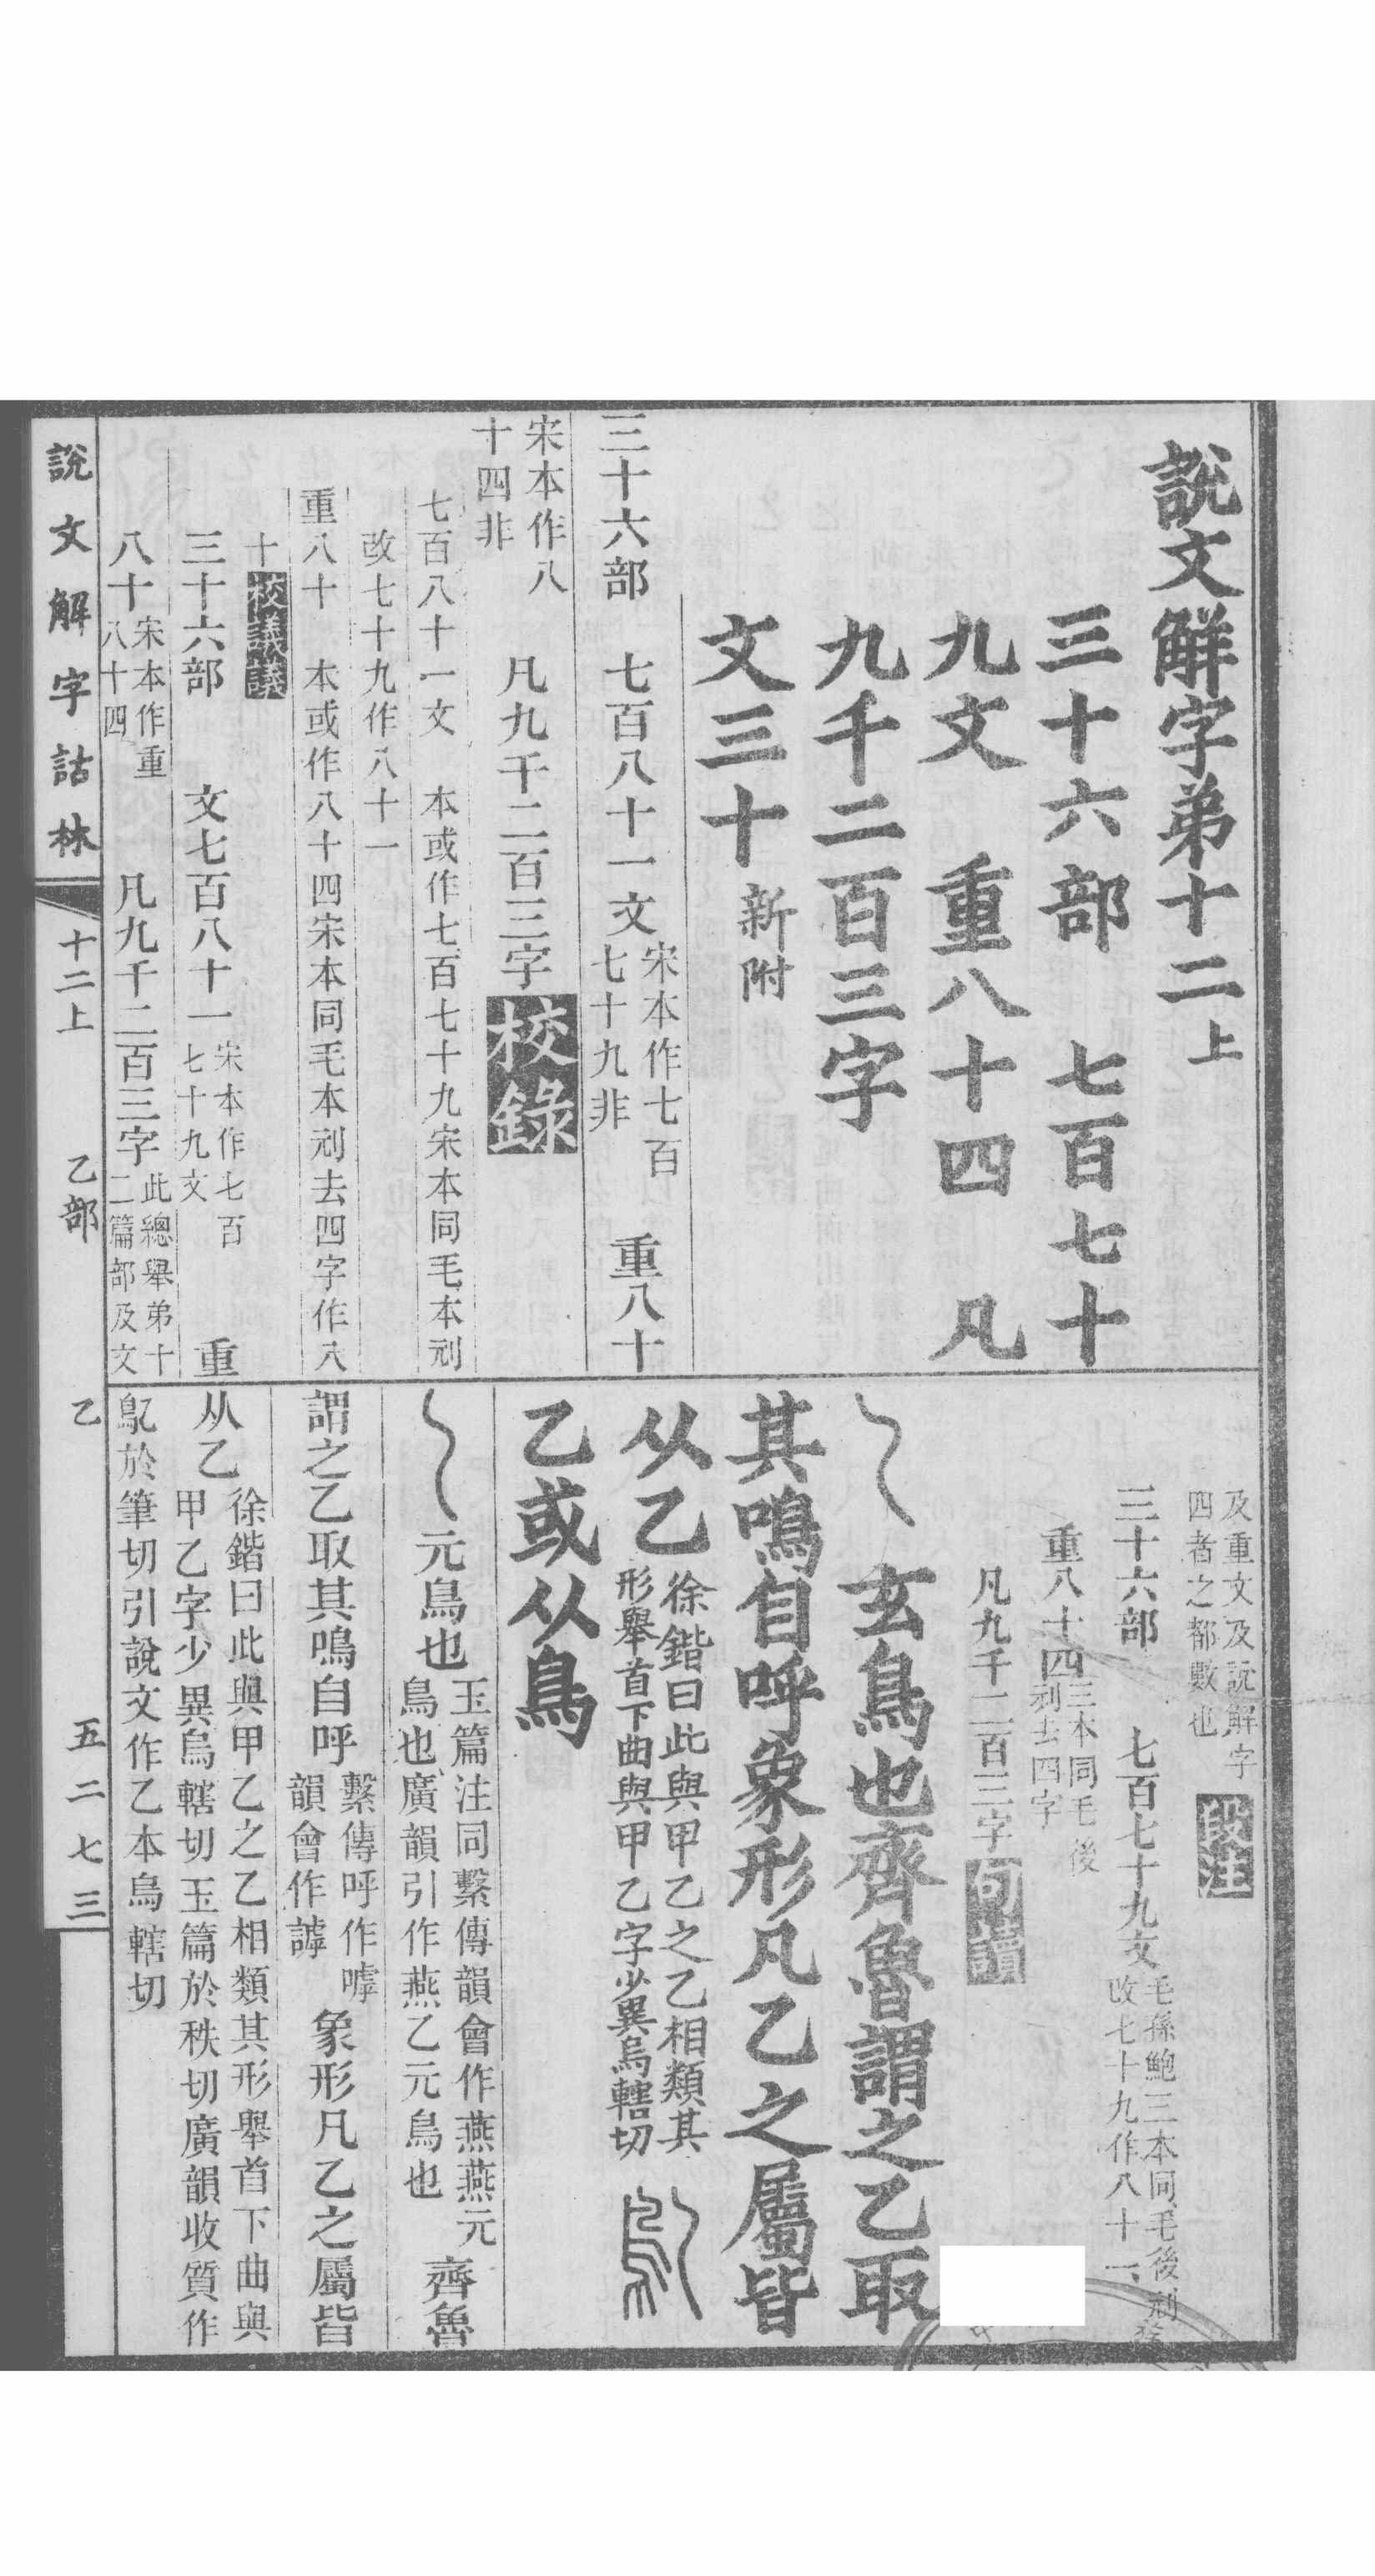 說文解字弟十二上
三十六部 七百七十
九文 重八十四 凡
九千二百三字
文三十新附
三十六部 七百八十一文宋本作七百
七十九非 重八十
宋本作八
十四非 凡九千二百三字校錄
七百八十一文 本或作七百七十九宋本同毛本剜
改七十九作八十一
重八十 本或作八十四宋本同毛本剜去四字作八
十校議議
三十六部 文七百八十一宋本作七百
七十九文 重
八十宋本作重
八十四 凡九千二百三字此總舉弟十
二篇部及文
及重文及說解字
四者之都數也段注
三十六部 七百七十九文毛孫鮑三本同毛後剜
改七十九作八十一
重八十四三本同毛後
剜去四字
凡九千二百三字句讀
玄鳥也齊魯謂之乙取
其鳴自呼象形凡乙之屬皆
从乙徐鍇曰此與甲乙之乙相類其
形舉首下曲與甲乙字少異烏轄切
乙或从鳥
元鳥也玉篇注同繫傳韻會作燕燕元
鳥也廣韻引作燕乙元鳥也齊魯
謂之乙取其鳴自呼繫傳呼作嘑
韻會作謼象形凡乙之屬皆
从乙徐鍇曰此與甲乙之乙相類其形舉首下曲與
甲乙字少異烏轄切玉篇於秩切廣韻收質作
鳦於筆切引說文作乙本烏轄切
說文解字詁林 十二上 乙部 乙 五二七三